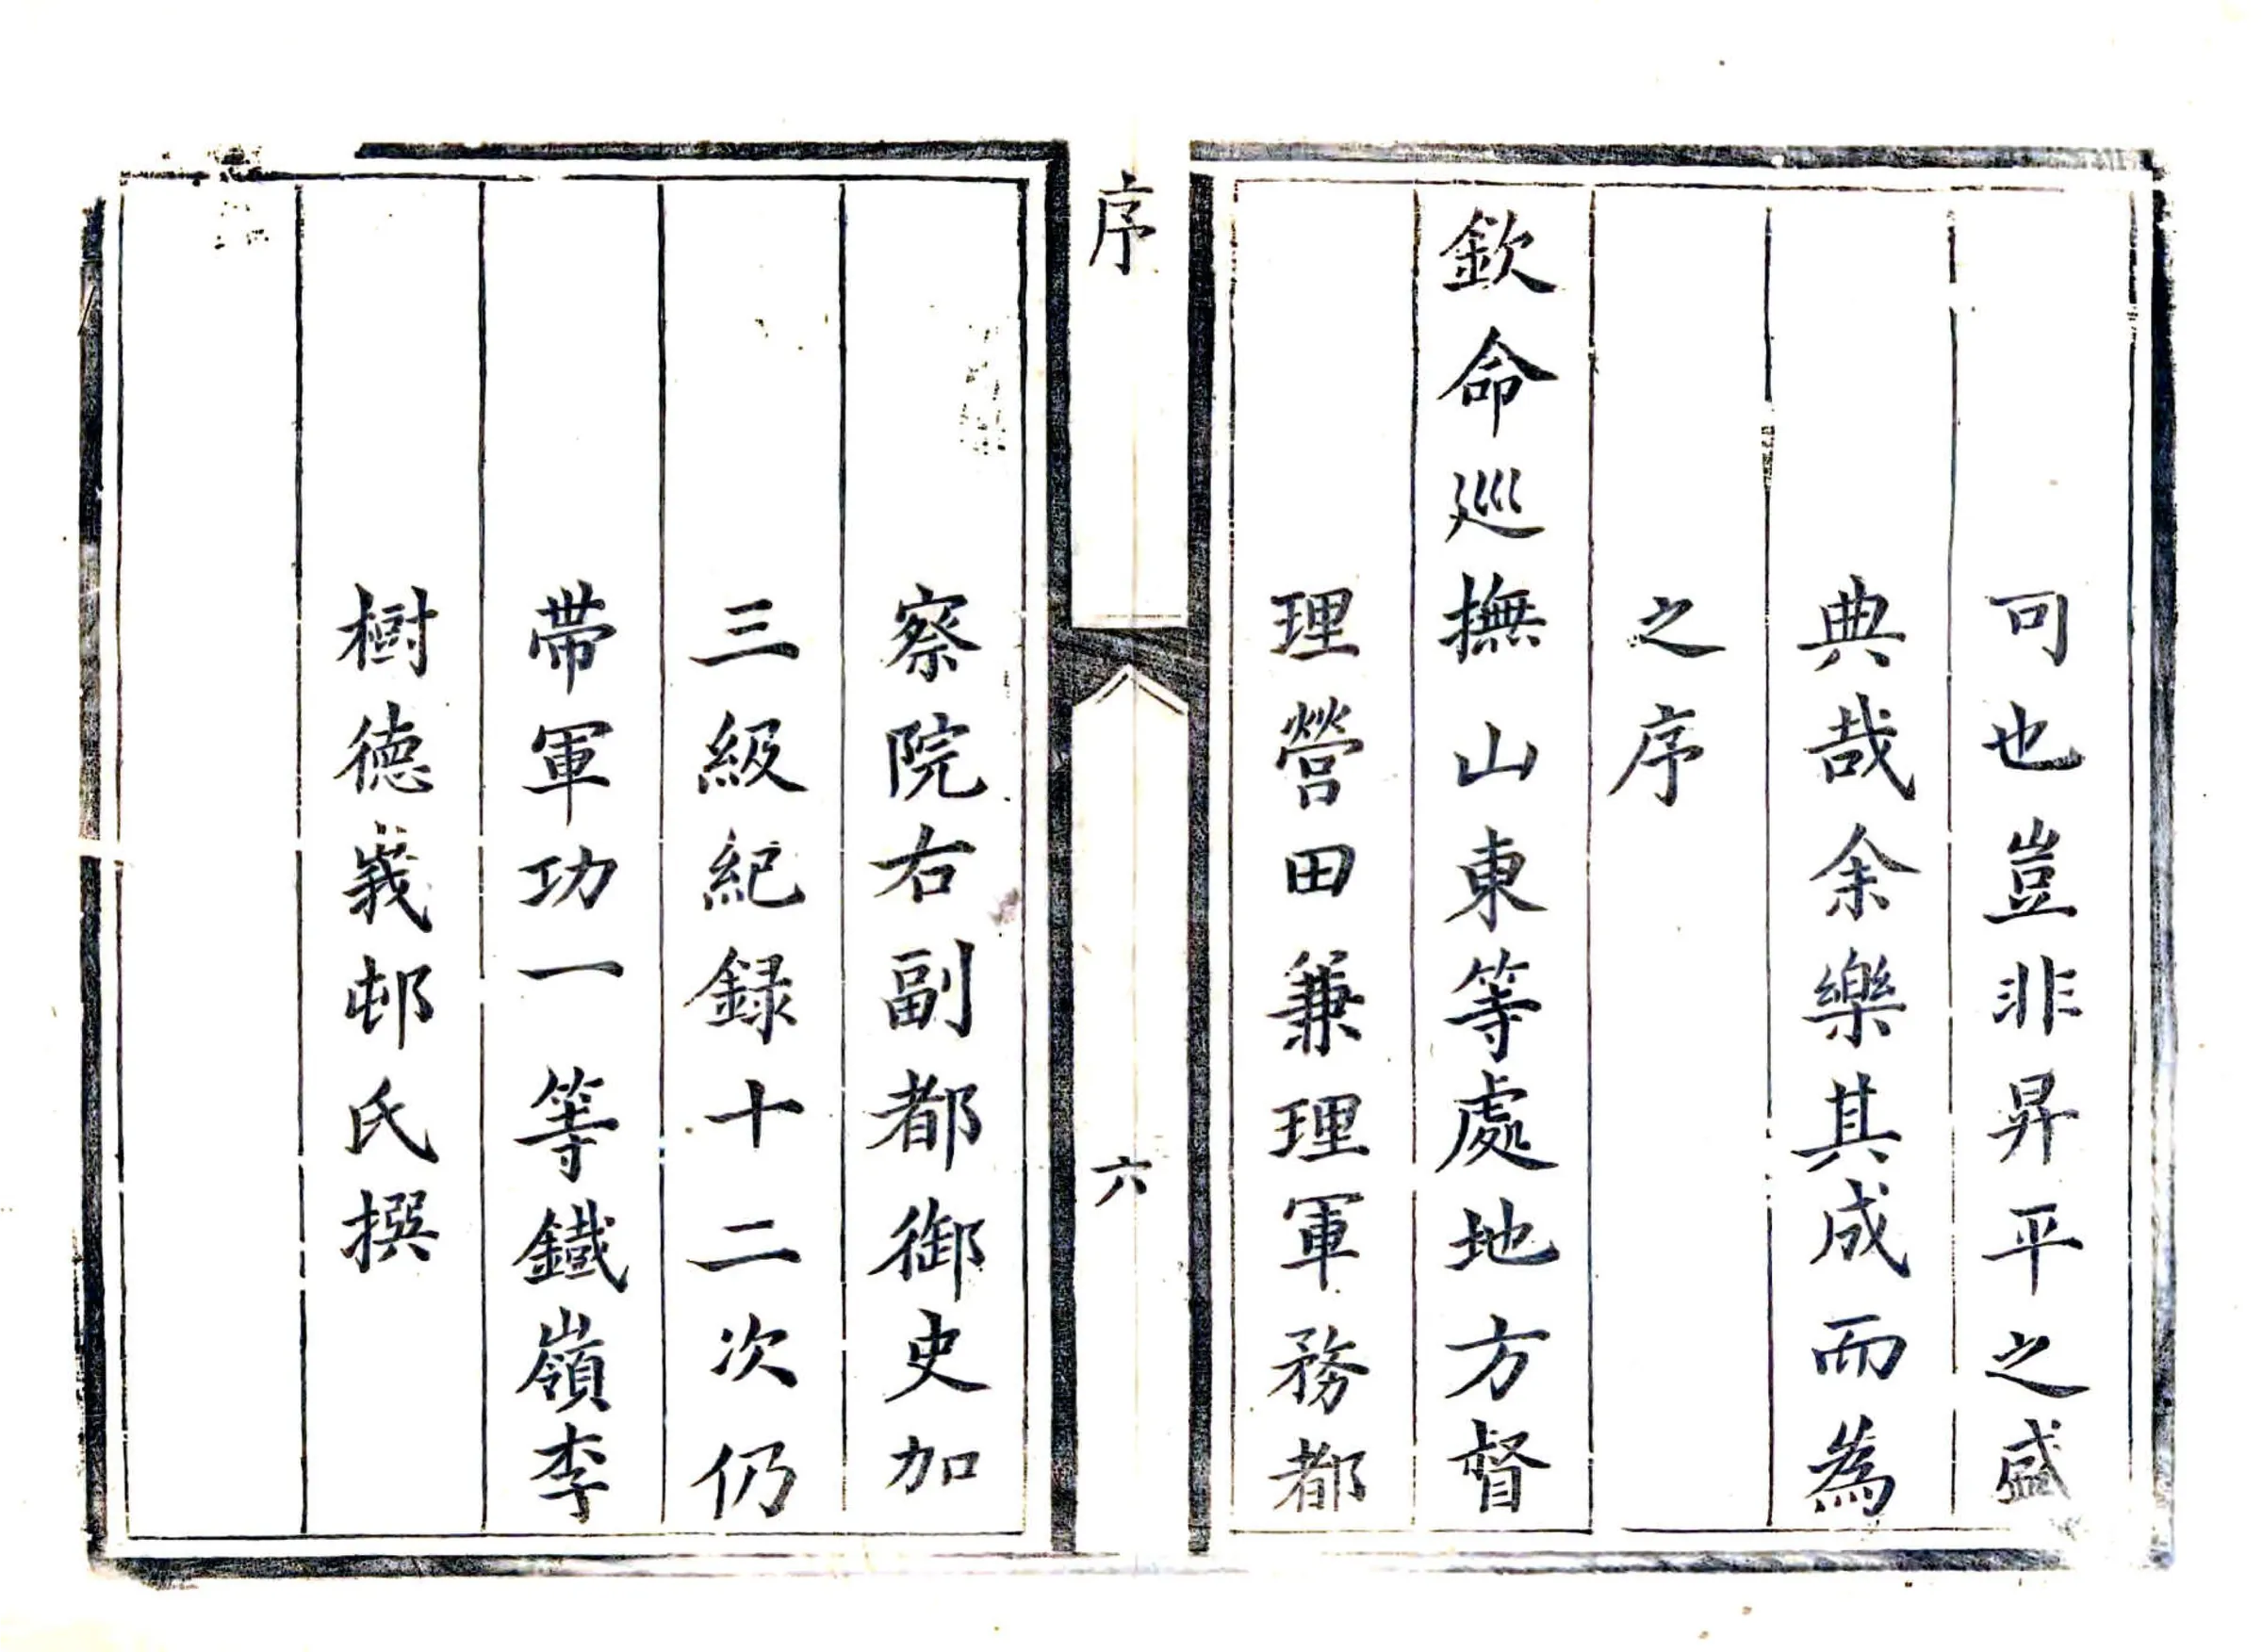 可也豈非昇平之盛
典哉余樂其成而為
之序
欽命巡撫山東等處地方督
理營田兼理軍務都
序
六
察院右副都御史加
三級紀録十二次仍
帯軍功一等鐡嶺李
樹德峩邨氏撰